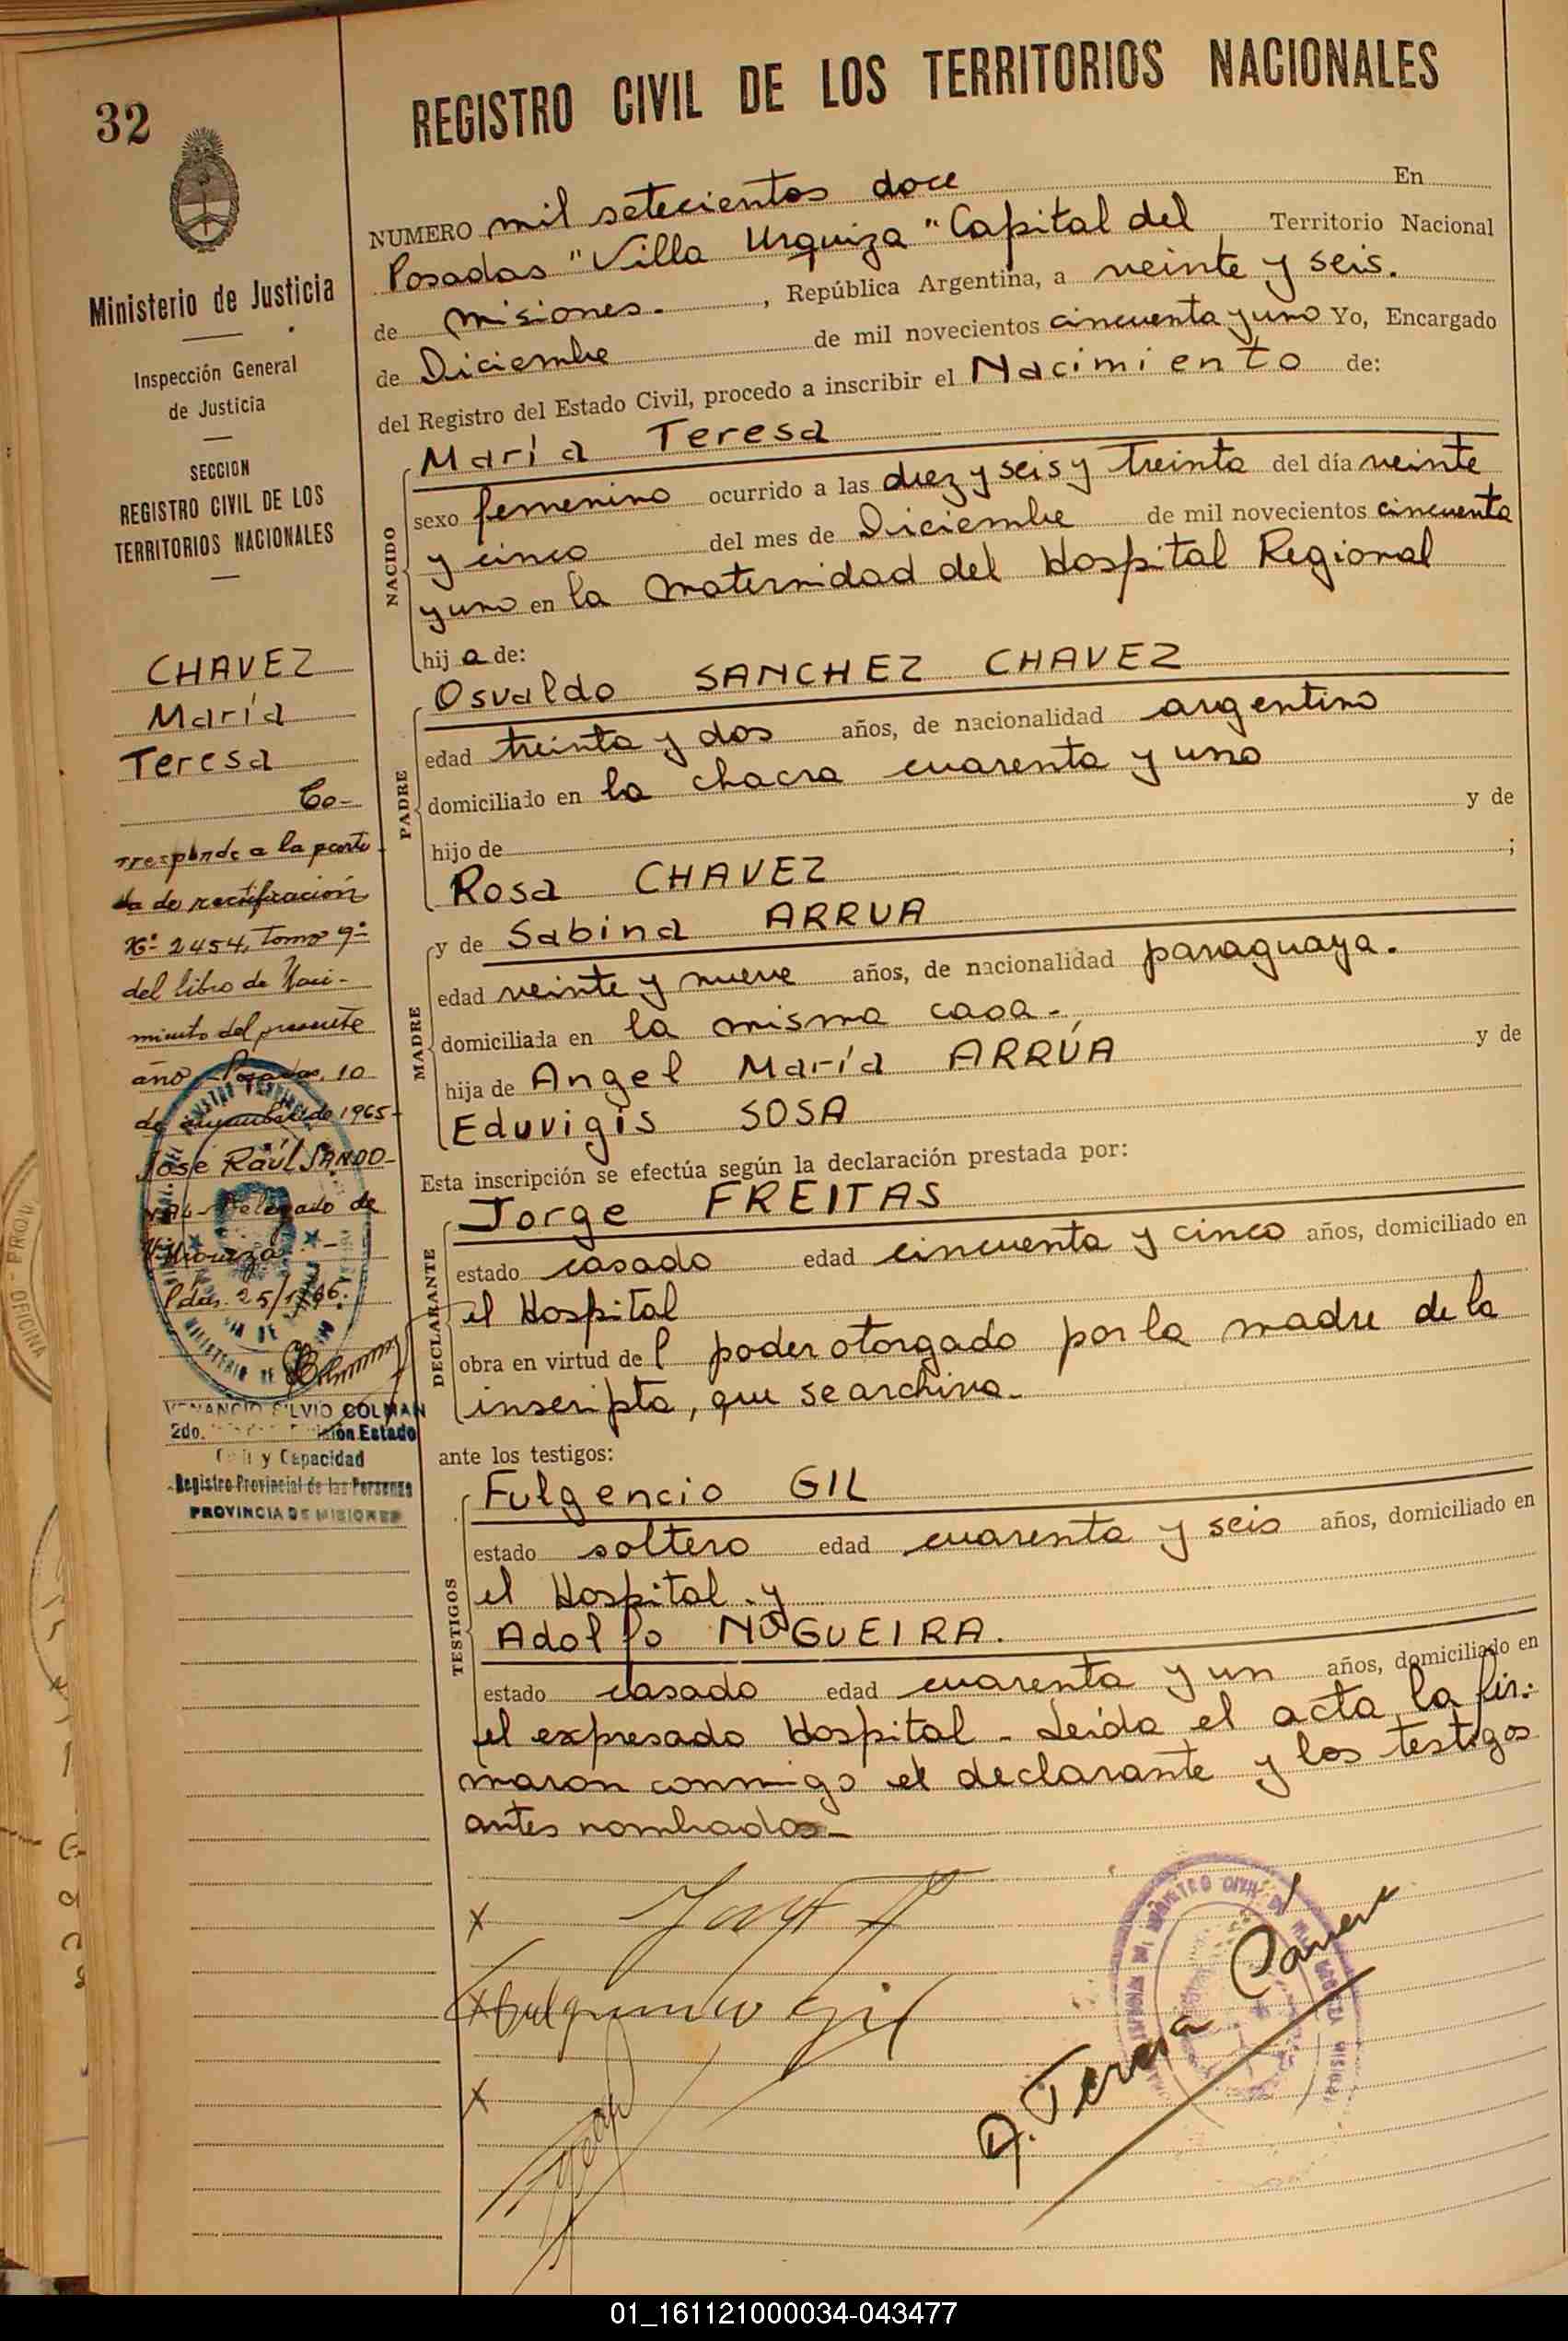 32
REGISTRO CIVIL DE LOS TERRITORIOS NACIONALES
Ministerio de Justicia
Inspección General
de Justicia
SECCION
REGISTRO CIVIL DE LOS
TERRITORIOS NACIONALES
CHAVEZ
María
Teresa
Co-
rresponde a la parti
da de rectificación
Nº 2454, Tomo 9º
del libro de Naci-
miento del presente
año - Posadas, 10
de 1965-
José Raúl SANDO-
VAL - Delegado de
V. Urquiza. -
Pdas. 25/1/66.
VENANCIO SILVIO COLMAN
2do. División Estado
Civil y Capacidad
Registro Provincial de las Personas
PROVINCIA DE MISIONES
NUMERO mil setecientos doce En
Posadas "Villa Urquiza" Capital del Territorio Nacional
de Misiones. , República Argentina, a veinte y seis.
de Diciembre de mil novecientos cincuenta y uno Yo, Encargado
del Registro del Estado Civil, procedo a inscribir el Nacimiento de:
NACIDO
María Teresa
sexo femenino ocurrido a las diez y seis y treinta del día veinte
y cinco del mes de Diciembre de mil novecientos cincuenta
y uno en la Maternidad del Hospital Regional
hij a de:
PADRE
Osvaldo SANCHEZ CHAVEZ
edad treinta y dos años, de nacionalidad argentino
domiciliado en la chacra cuarenta y uno
hijo de y de
Rosa CHAVEZ ;
MADRE
y de Sabina ARRUA
edad veinte y nueve años, de nacionalidad paraguaya.
domiciliada en la misma casa.
hija de Angel María ARRÚA y de
Eduvigis SOSA
Esta inscripción se efectúa según la declaración prestada por:
DECLARANTE
Jorge FREITAS
estado casado edad cincuenta y cinco años, domiciliado en
el Hospital
obra en virtud de l poder otorgado por la madre de la
inscripta, que se archiva.
ante los testigos:
TESTIGOS
Fulgencio GIL
estado soltero edad cuarenta y seis años, domiciliado en
el Hospital y
Adolfo NOGUEIRA.
estado casado edad cuarenta y un años, domiciliado en
el expresado Hospital - Leída el acta, la fir-
maron conmigo el declarante y los testigos
antes nombrados-
x
x Fulgencio Gil
x
D. Teresa
01_161121000034-043477